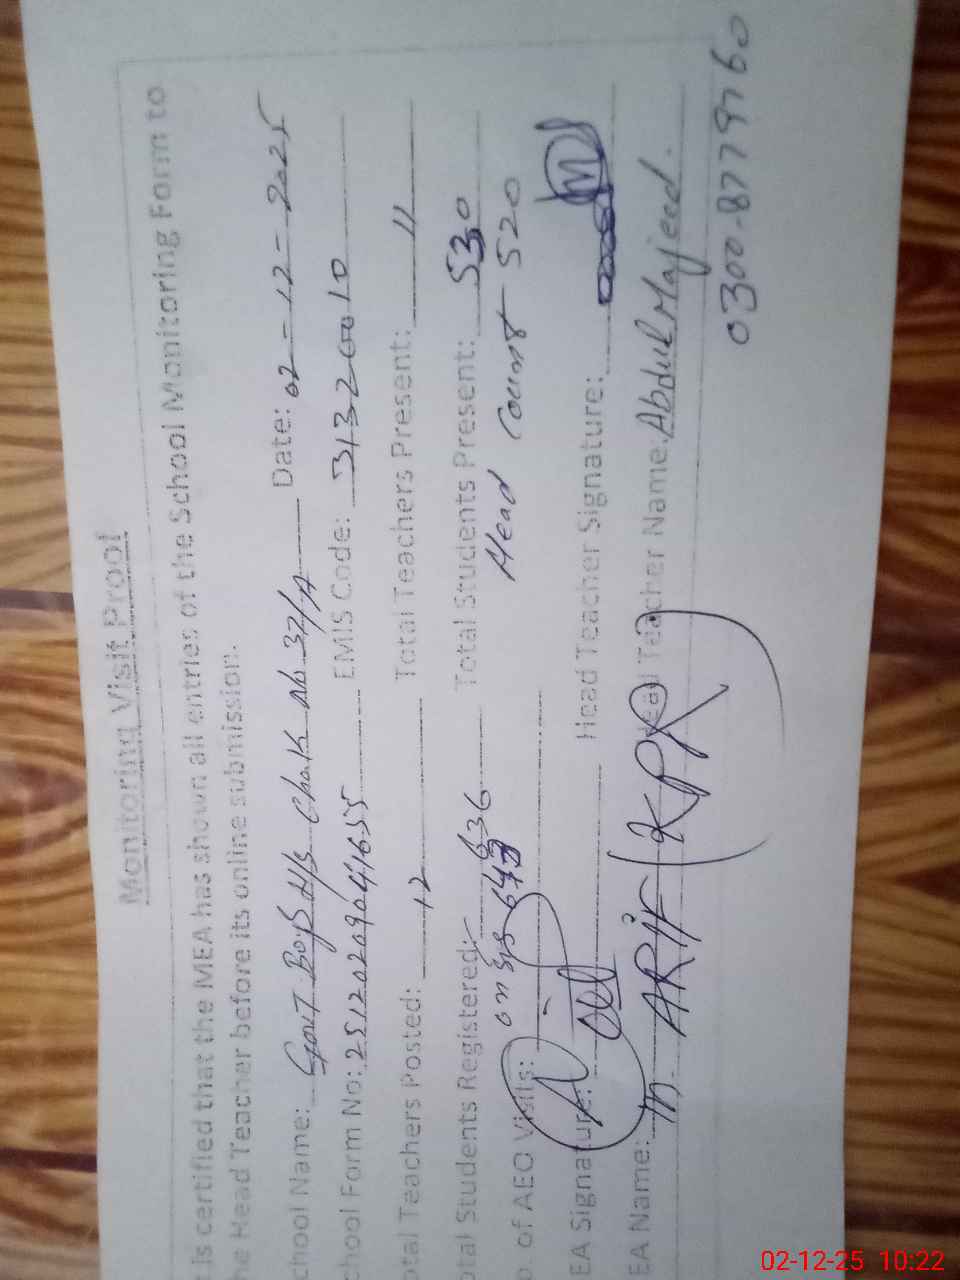 Monitoring Visit Proof
Is certified that the MEA has shown all entries of the School Monitoring Form to
he Head Teacher before its online submission.
chool Name: Govt Boys H/S Chak No 32/A Date: 02-12-2025
chool Form No: 2512020904655 EMIS Code: 31320010
otal Teachers Posted: 12 Total Teachers Present: 11
otal Students Registered: 636 Total Students Present: 530
on sis 643 Head Count 520
o. of AEO Visits:
EA Signature: Head Teacher Signature:
EA Name: M. ARIF (KPR) Head Teacher Name: Abdul Majeed.
0300-8779760
02-12-25 10:22